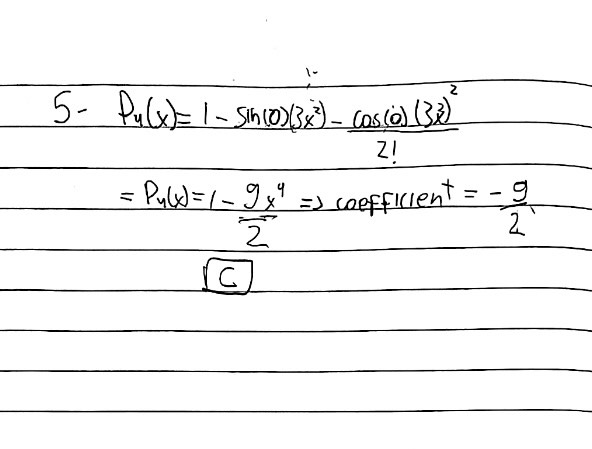 5- P₄(x) = 1 - sin(0)(3x²) - cos(0)(3x²)²/2!
= P₄(x) = 1 - 9x⁴/2 => coefficient = -9/2
C